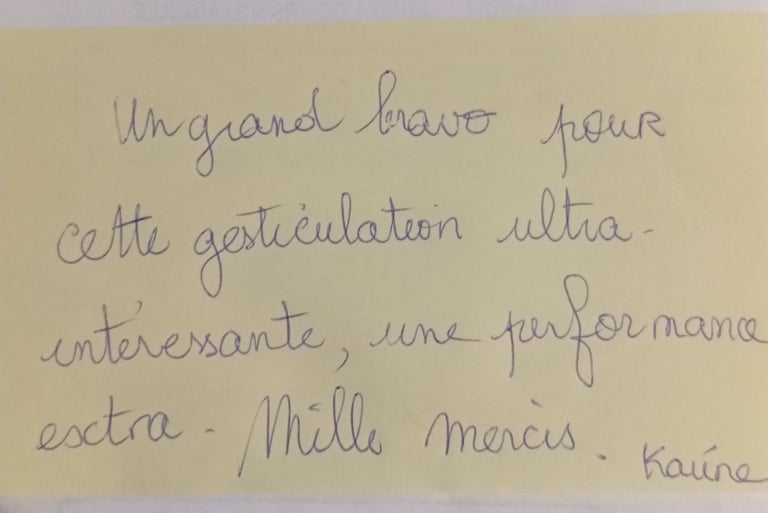 Un grand bravo pour
cette gesticulation ultra-
intéressante, une performance
extra. Mille mercis.
Karine